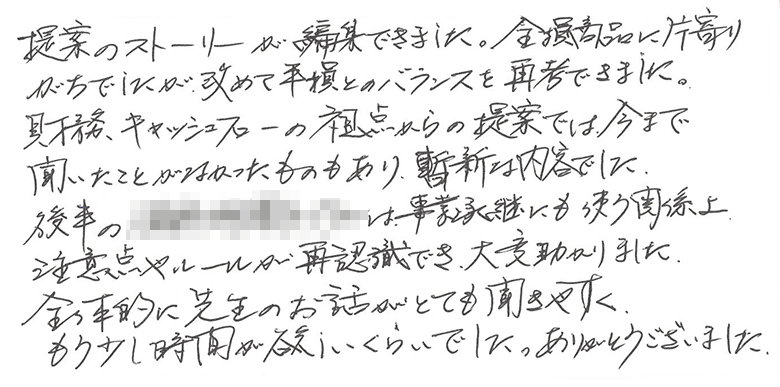 提案のストーリーが編集できました。全損商品に片寄り
がちでしたが、改めて半損とのバランスを再考できました。
財務、キャッシュフローの視点からの提案では、今まで
聞いたことがなかったものもあり、暫新な内容でした。
後半の は、事業承継にも使う関係上、
注意点やルールが再認識でき、大変助かりました。
全体的に先生のお話がとても聞きやすく、
もう少し時間が欲しいくらいでした。ありがとうございました。